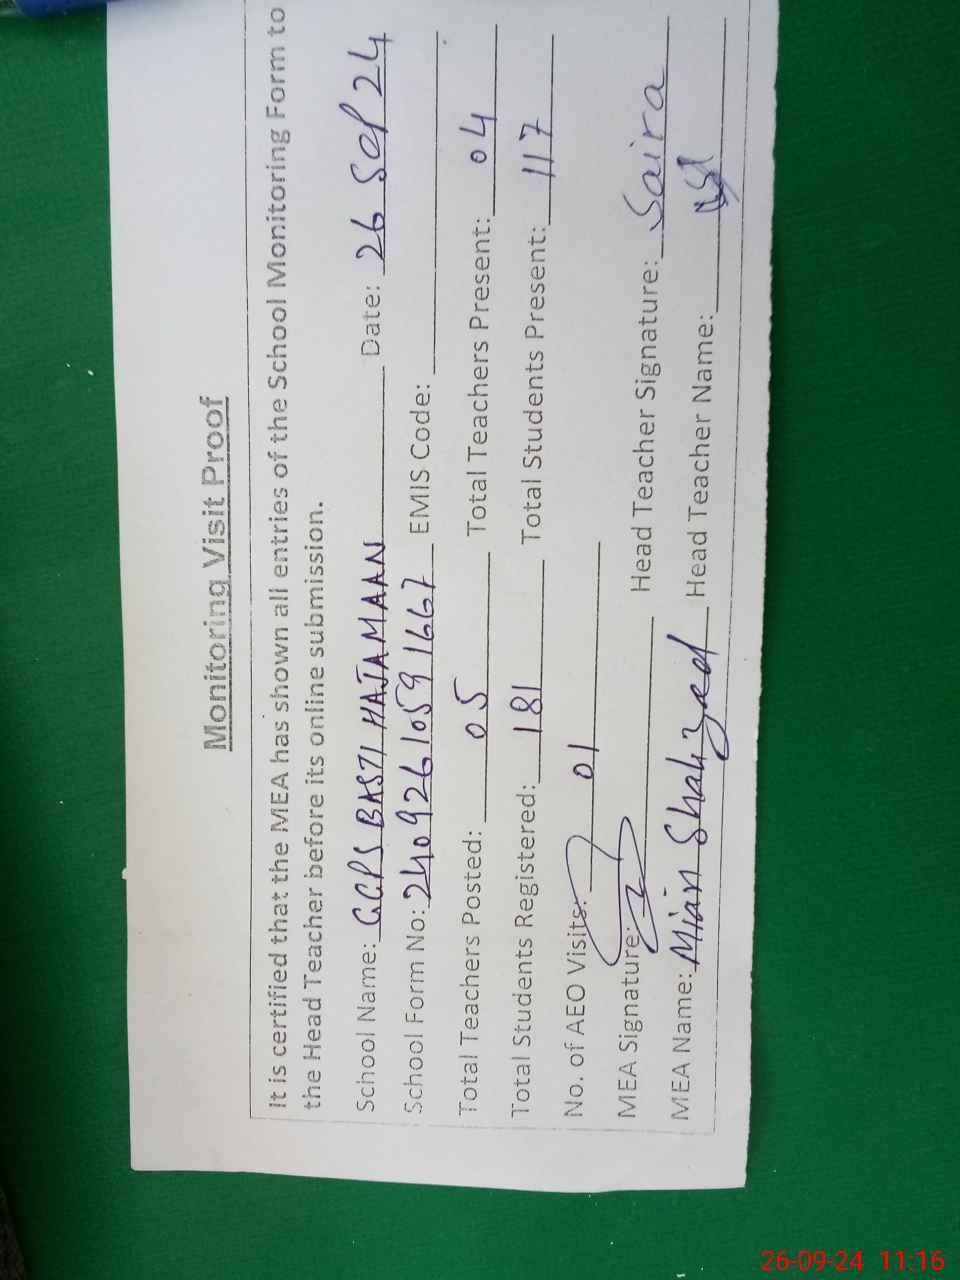 Monitoring Visit Proof
It is certified that the MEA has shown all entries of the School Monitoring Form to
the Head Teacher before its online submission.
School Name: GGPS BASTI HAJAMAAN Date: 26 Sep 24
School Form No: 24092610591667 EMIS Code:
Total Teachers Posted: 05 Total Teachers Present: 04
Total Students Registered: 181 Total Students Present: 117
No. of AEO Visits: 01
MEA Signature: Head Teacher Signature: Saira
MEA Name: Mian Shahzad Head Teacher Name:
26-09-24 11:16